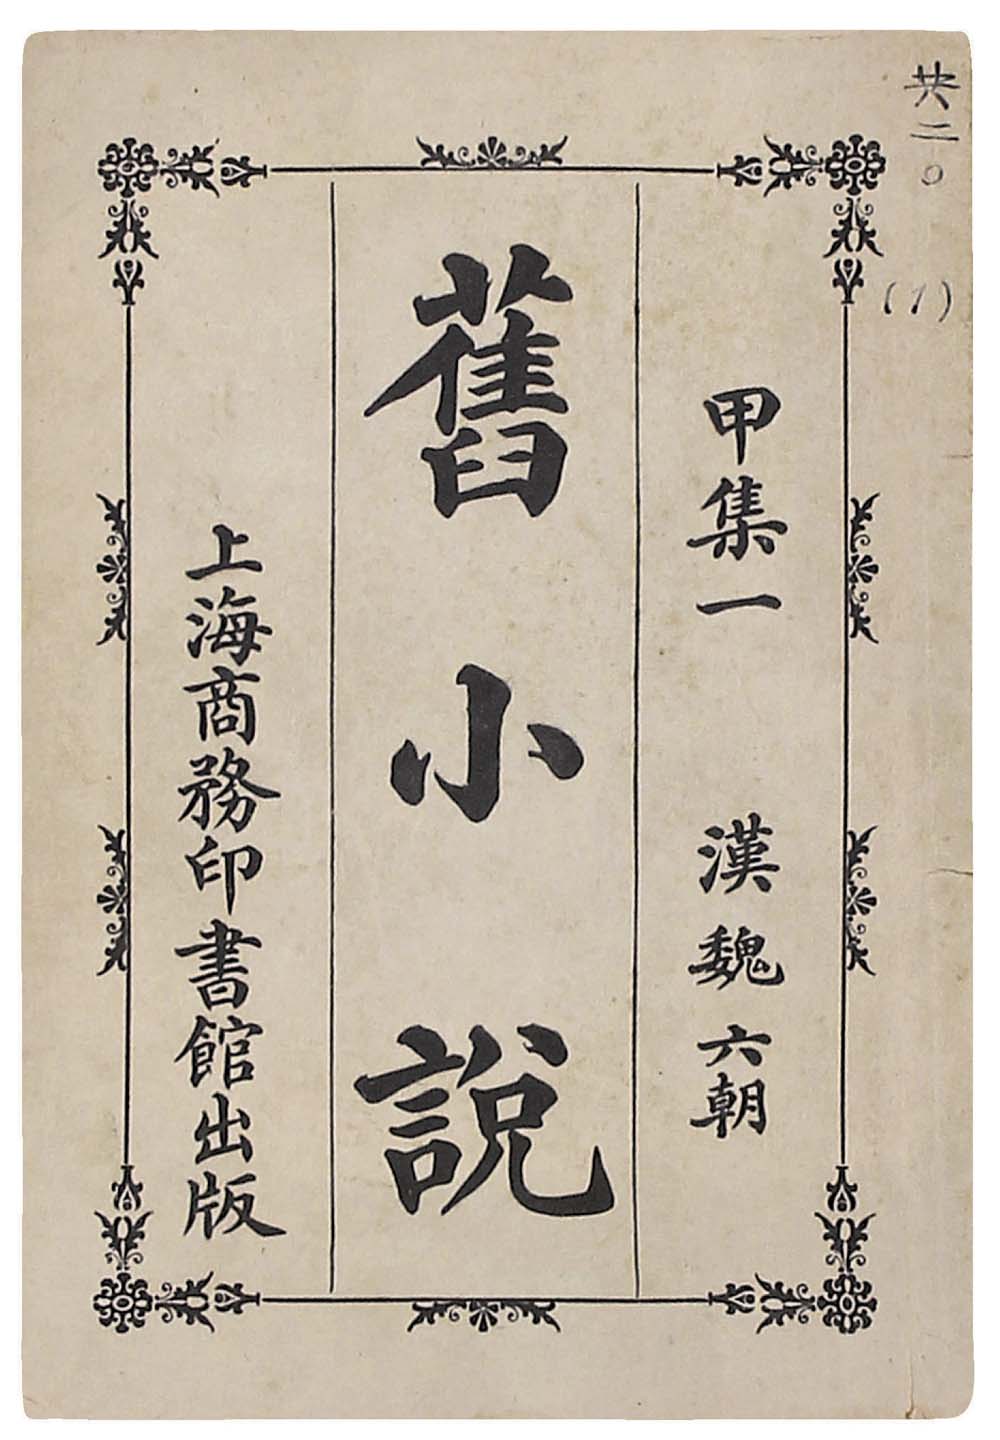 共二〇
(1)
甲集一 漢魏六朝
舊小說
上海商務印書館出版